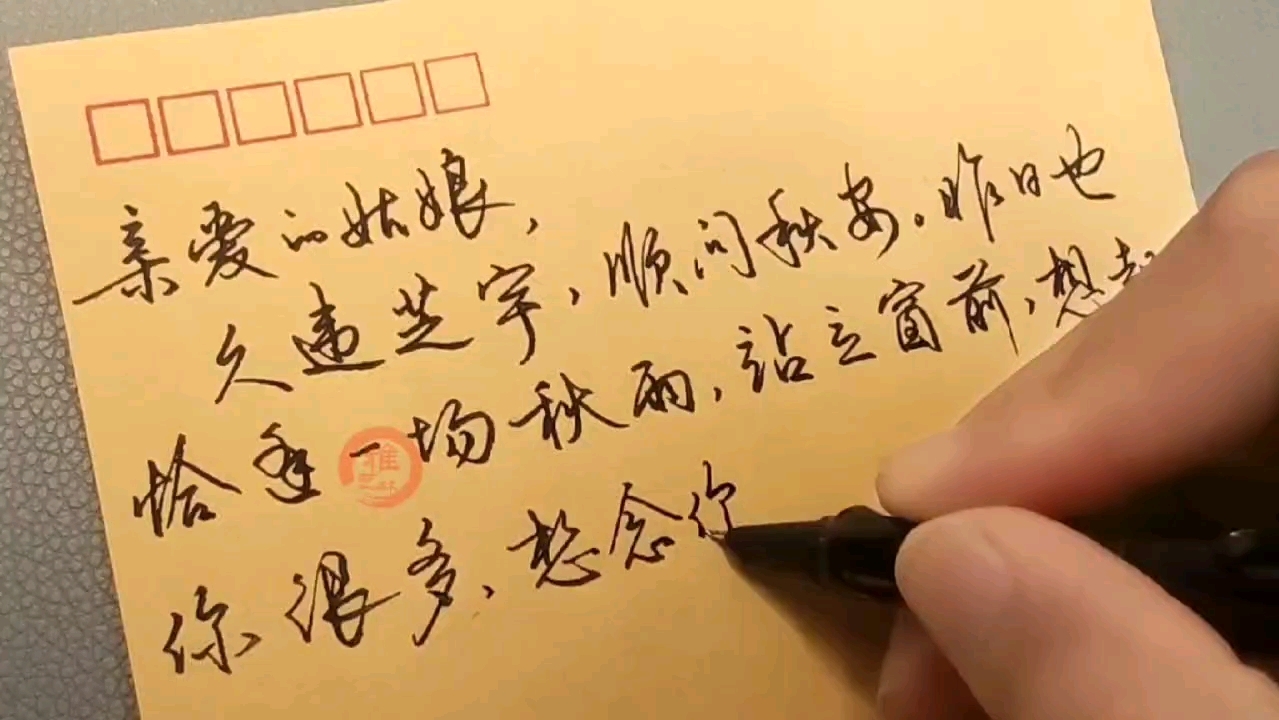 亲爱的姑娘，
久违芝宇，顺问秋安。昨日也
恰逢一场秋雨，站立窗前，想起
你很多、想念你